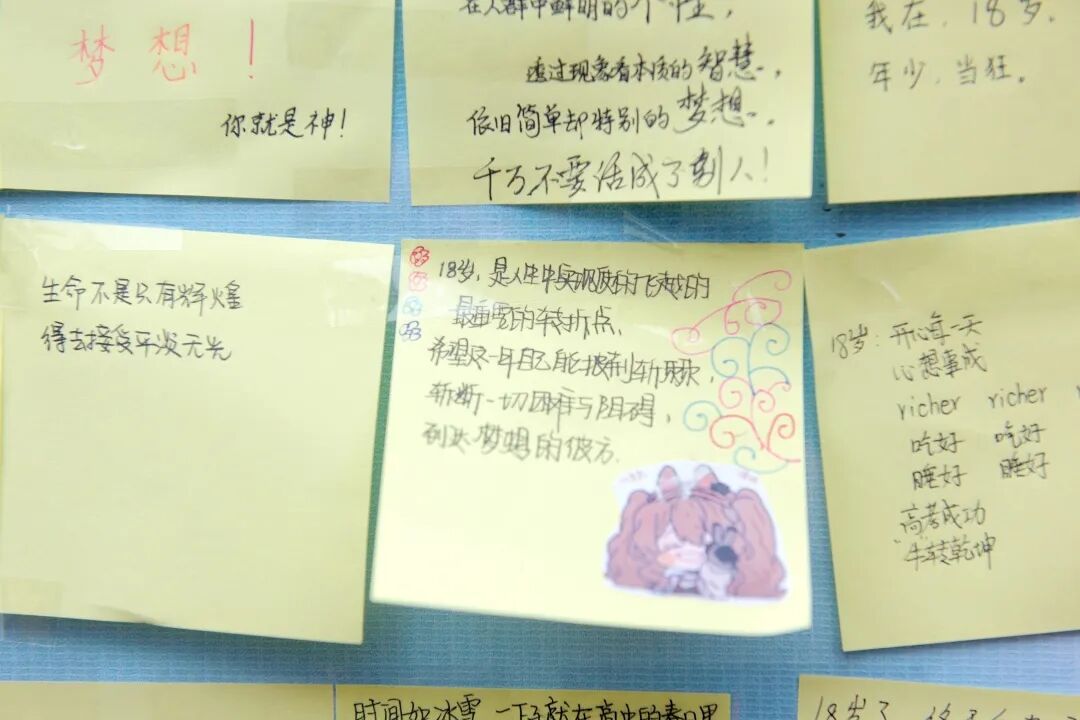 梦想!
你就是神!
在人群中鲜明的个性,
透过现象看本质的智慧,
依旧简单却特别的梦想,
千万不要活成了别人!
我在,18岁,
年少,当狂。
生命不是只有辉煌
得去接受平淡无光
18岁,是人生中实现质的飞越的
最重要的转折点,
希望这一年自己能披荆斩棘,
斩断一切困难与阻碍,
到达梦想的彼方.
18岁:开心每一天
心想事成
richer richer
吃好 吃好
睡好 睡好
高考成功
"牛转乾坤
时间如冰雪,一下子就在高中的
18岁了